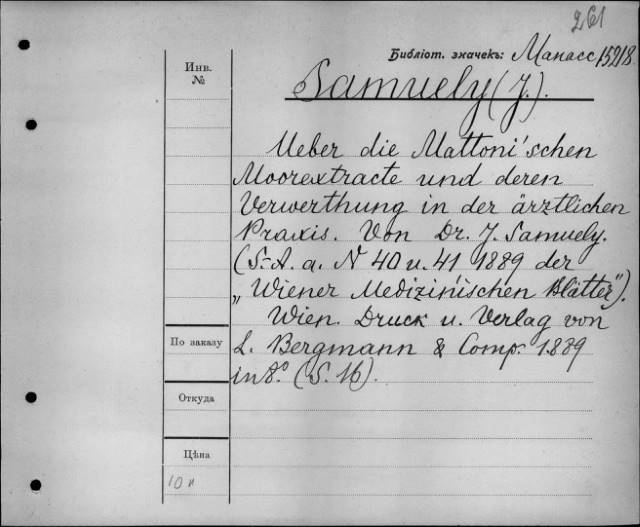 261
Библіот. значекъ: Манасс 15918.
Инв.
№
Samuely (J.).
Ueber die Mattoni'schen
Moorextracte und deren
Verwerthung in der ärztlichen
Praxis. Von Dr. J. Samuely.
(S.-A. a. N 40 u. 41 1889 der
„Wiener Medizin'ischen Blätter").
Wien. Druck u. Verlag von
L. Bergmann & Comp. 1889
in 8.° (S. 16).
По заказу
Откуда
Цѣна
10 к